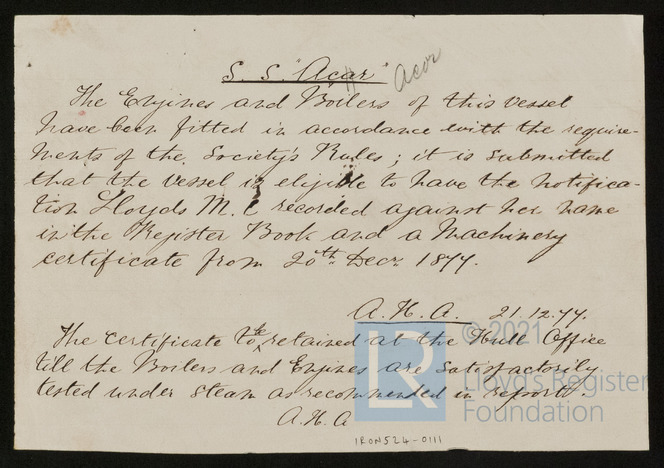 S. S. "Acar" Acor
The Engines and Boilers of this vessel
have been fitted in accordance with the require-
ments of the Society's Rules; it is submitted
that the vessel is eligible to have the notifica-
tion Lloyds M. C recorded against her name
in the Register Book and a Machinery
certificate from 20th Decr 1877.
A. H. A. 21.12.77.
The certificate to be retained at the Hull Office
till the Boilers and Engines are satisfactorily
tested under steam as recommended in report.
A. H. A
IRON524-0111
LR
© 2021
Lloyd's Register
Foundation